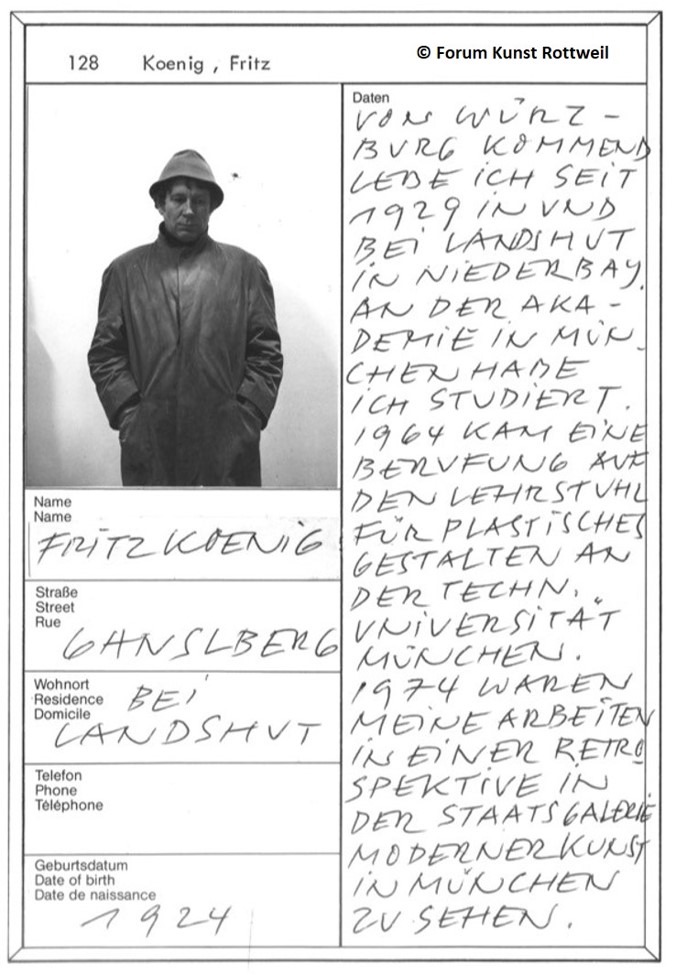 128 Koenig , Fritz
© Forum Kunst Rottweil
Name
Name
FRITZ KOENIG
Straße
Street
Rue
GANSLBERG
Wohnort
Residence
Domicile
BEI
LANDSHUT
Telefon
Phone
Téléphone
Geburtsdatum
Date of birth
Date de naissance
1924
Daten
VON WÜRZ-
BURG KOMMEND
LEBE ICH SEIT
1929 IN UND
BEI LANDSHUT
IN NIEDERBAY.
AN DER AKA-
DEMIE IN MÜN-
CHEN HABE
ICH STUDIERT.
1964 KAM EINE
BERUFUNG AUF
DEN LEHRSTUHL
FÜR PLASTISCHES
GESTALTEN AN
DER TECHN.
UNIVERSITÄT
MÜNCHEN.
1974 WAREN
MEINE ARBEITEN
IN EINER RETRO
SPEKTIVE IN
DER STAATSGALERIE
MODERNER KUNST
IN MÜNCHEN
ZU SEHEN.